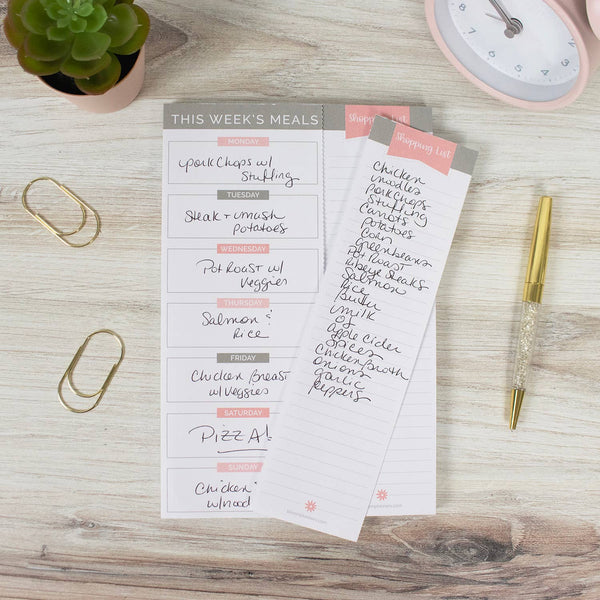 THIS WEEK'S MEALS
MONDAY
porkChops w/
Stuffing
TUESDAY
Steak + mash
potatoes
WEDNESDAY
Pot Roast w/
Veggies
THURSDAY
Salmon &
Rice
FRIDAY
Chicken Breast
w/veggies
SATURDAY
PIZZA!
SUNDAY
Chicken
w/nood
Shopping List
Shopping List
Chicken
noodles
porkChops
Stuffing
Carrots
potatoes
Corn
greenbeans
Pot Roast
ribeye Steaks
Salmon
Rice
Butter
milk
OJ
apple Cider
Spices
Chicken Broth
onions
garlic
peppers